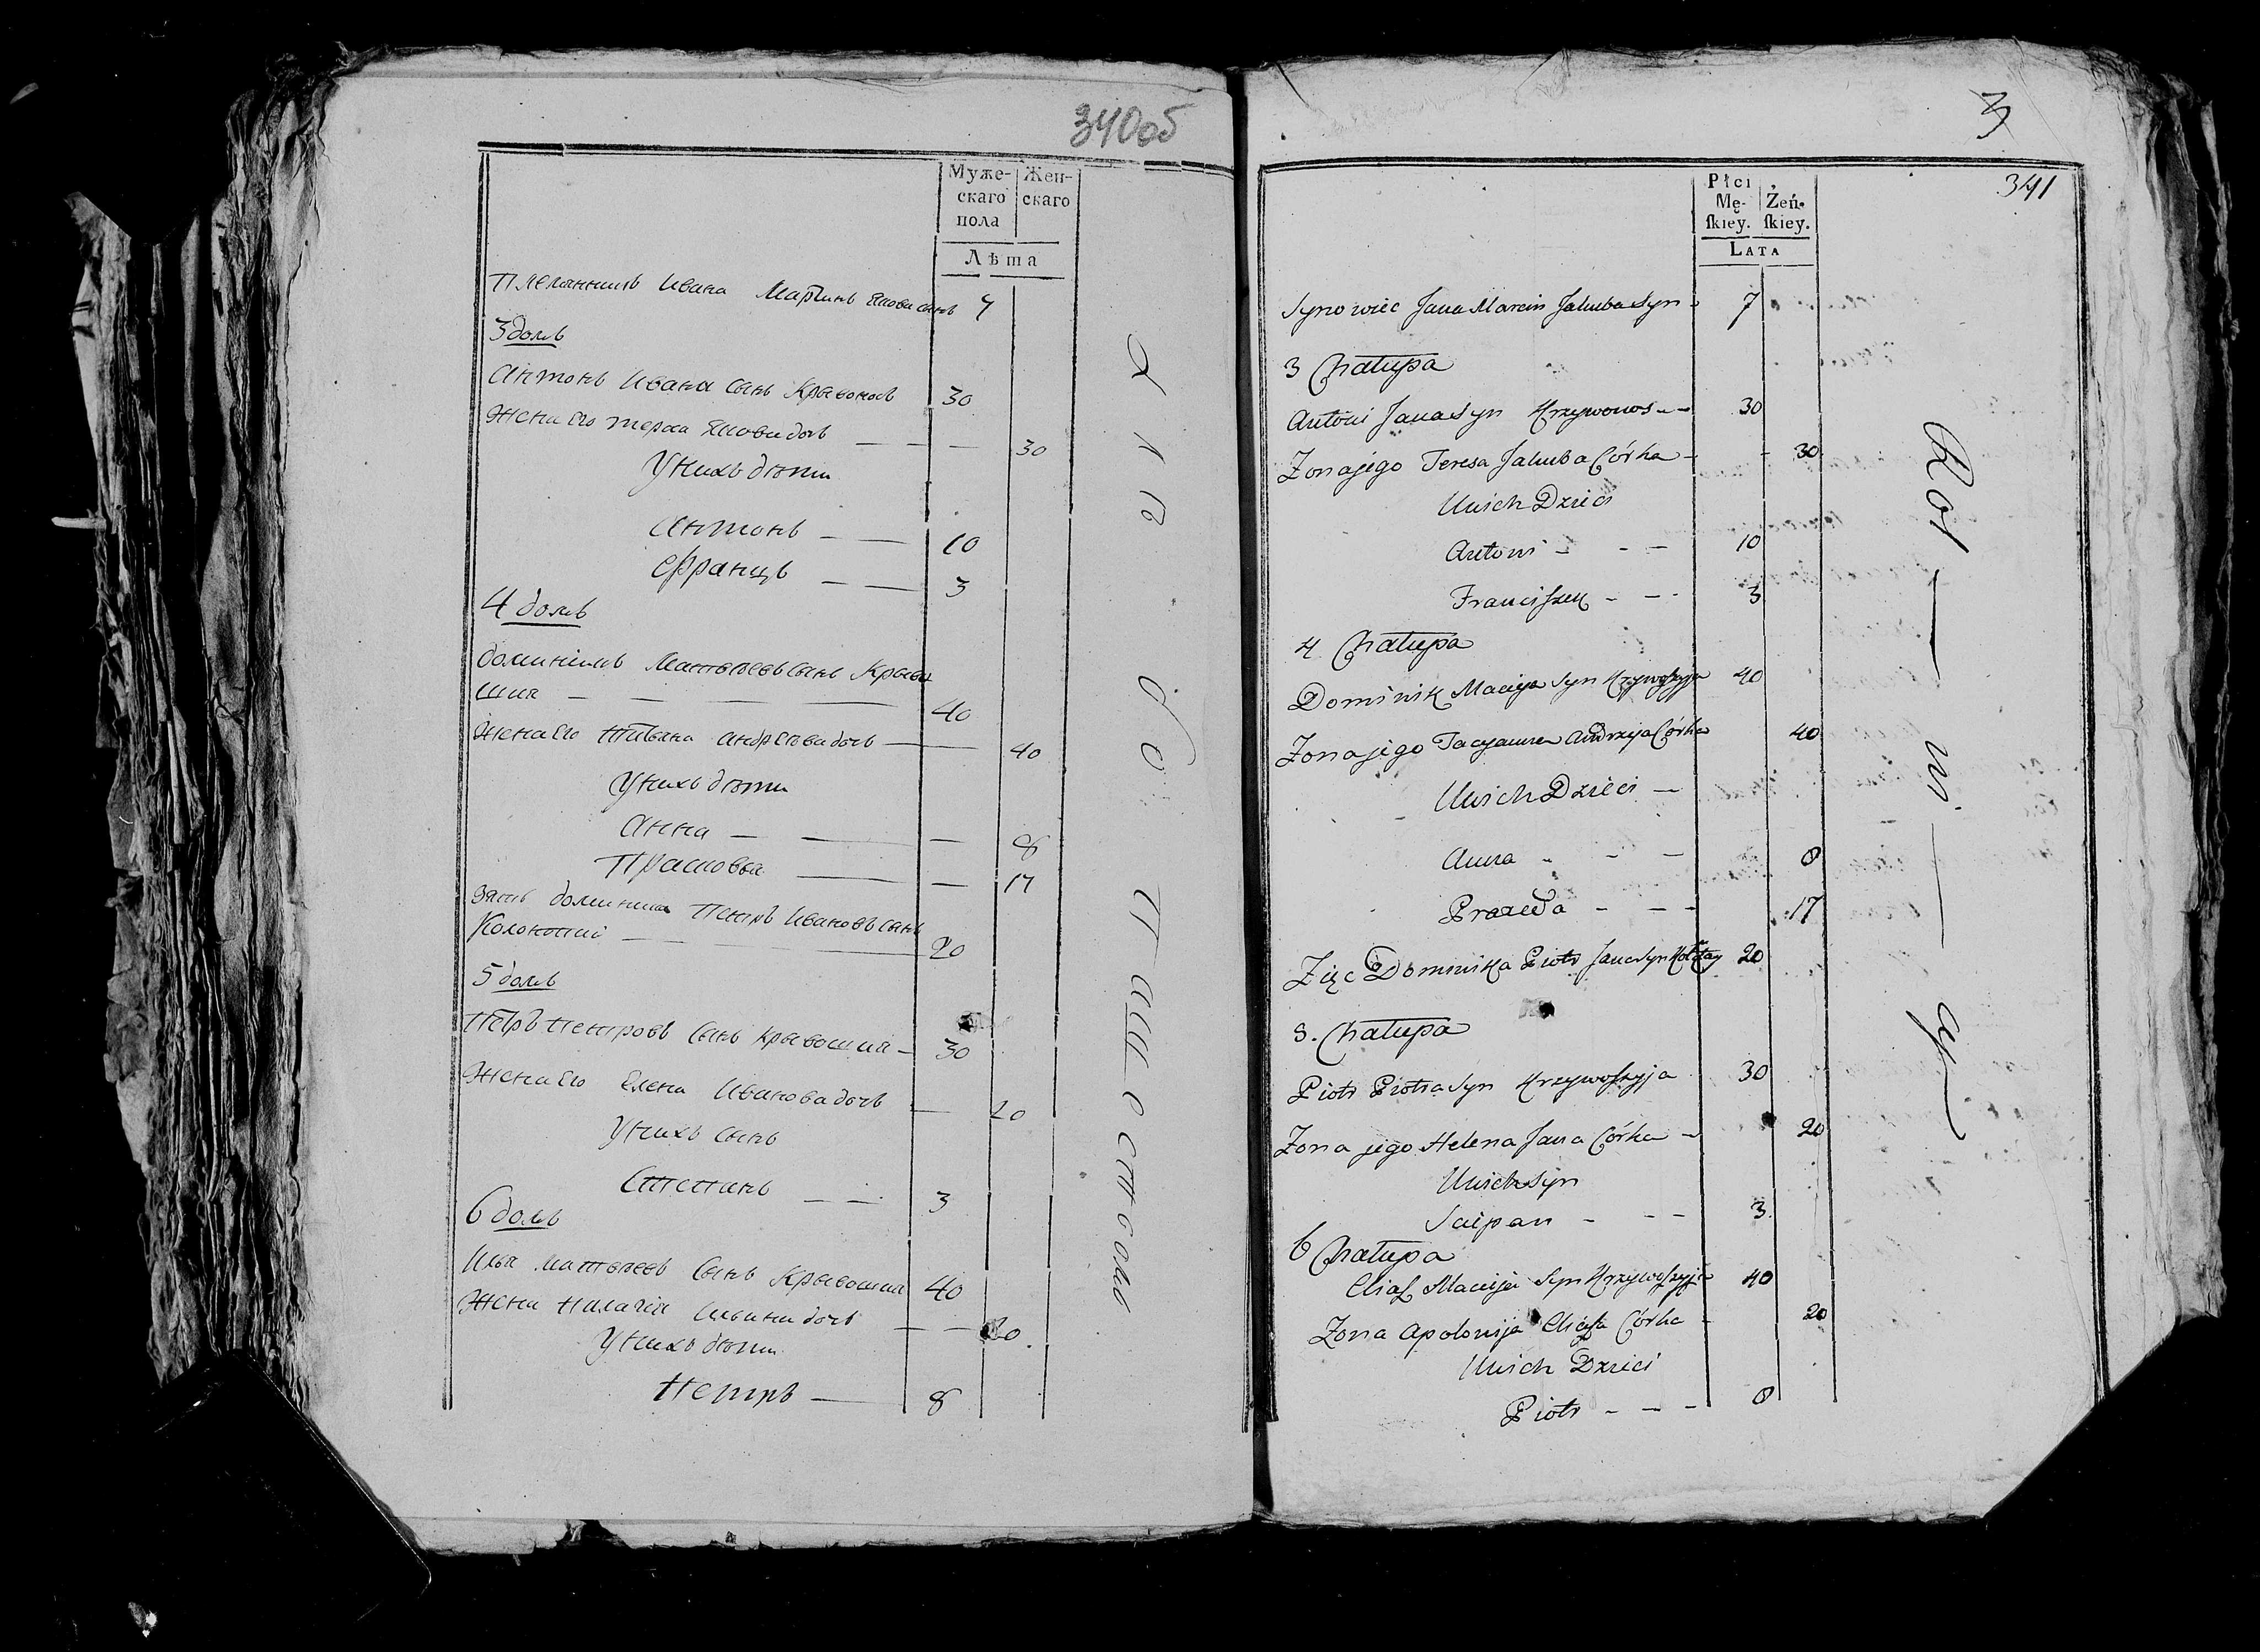 340об
Муже-
скаго
пола
Жен-
скаго
Лѣта
Племянникъ Ивана Мартинъ Якова сынъ 7
3 домъ
Антонъ Ивана сынъ Кривоносъ 30
Жена его Тереса Якова дочь — — — 30
У нихъ дѣти
Антонъ — — 10
Францъ — — 3
4 домъ
Доминикъ Матвѣевъ сынъ Криво
шия — — — — 40
Жена его Татьяна Андрѣева дочь — — 40
У нихъ дѣти
Анна — — — 8
Прасковья — — 17
Зять Доминика Петръ Ивановъ сынъ
20
5 домъ
Петръ Петровъ сынъ Кривошия — 30
Жена его Елена Иванова дочь — 20
У нихъ сынъ
Степанъ — — 3
6 домъ
Илья Матвѣевъ сынъ Кривошия 40
Жена Палагія Ильина дочь — — 20
У нихъ дѣти
Петръ — 8
3
341
Płci
Mę-
ſkiey.
Żeń-
ſkiey.
LATA
Synowiec Jana Marcin Jakuba Syn - 7
3 Chałupa
Antoni Jana Syn Krzywonos - - 30
Zona jego Teresa Jakuba Córka - - 30
U nich Dzieci
Antoni - - - 10
Franciszek - - - 3
4 Chałupa
Dominik Macieja Syn Krzywoszyja 40
Zona jego Tacyanna Andrzeja Córka 40
U nich Dzieci -
Anna - - - 8
Praxeda - - - 17
Zięc Dominika Piotr Jana Syn 20
5. Chałupa
Piotr Piotra Syn Krzywoszyja 30
Zona jego Helena Jana Córka - 20
U nich Syn
Sciepan - - - 3.
6 Chałupa
Eliasz Macieja Syn Krzywoszyja 40
Zona Apolonija Eliasza Córka - 20
U nich Dzieci
Piotr - - - 8